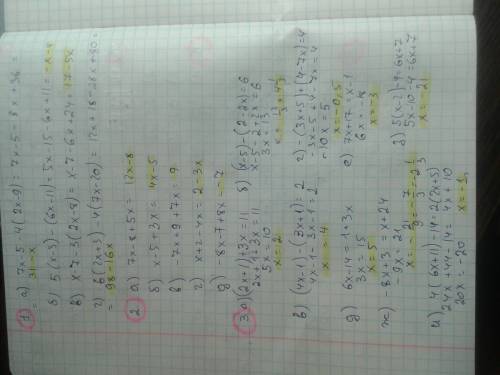 1) а) 7x-5-4(2x-9) = 7x-5-8x+36 =
= 31-x
б) 5(x-3)-(6x+11) = 5x-15-6x+11 = -x-4
в) x-7-3(2x-8) = x-7-6x+24 = 17-5x
г) 6(2x+3)-4(7x-20) = 12x+18-28x+80 =
= 98-16x
2) а) 7x-8+5x = 12x-8
б) x-5+3x = 4x-5
в) -7x+9+7x = 9
г) x+2-4x = 2-3x
д) -8x-7+8x = -7
3) а) (2x+1)+3x=11
2x+1+3x=11
5x=10
x=2
б) (x-5)-(2-2x)=6
x-5-2+2x=6
3x=13
в) (4x-1)-(2x+1)=2
4x-1-2x-1=2
x=4
г) -(3x+5)+(4-7x)=4
-3x-5+4-7x=4
-10x=5
x=-0,5
д) 6x-14=1+3x
3x=15
x=5
е) 7x+17=x-1
6x=-18
x=-3
ж) -8x-3=x+24
-9x=21
з) 5(x-2)-9=6x+7
5x-10-9=6x+7
x=-21
и) 4(6x+11)-14=2(2x+5)
24x+44-14=4x+10
20x=-20
x=-1